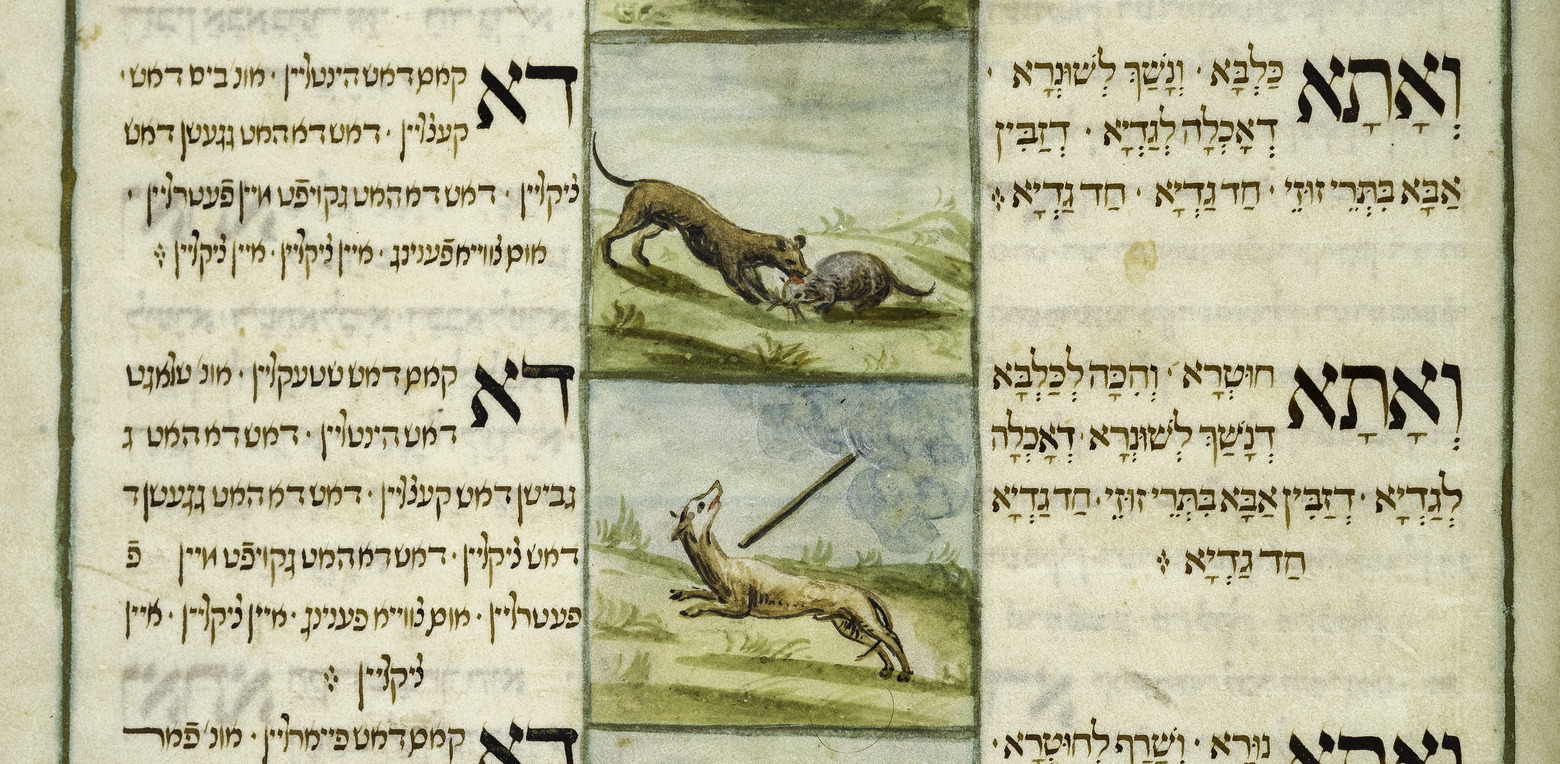 וְאָתָא כַּלְבָּא · וְנָשַׁךְ לְשׁוּנְרָא ·
דְאָכְלָה לְגַדְיָא · דְזַבִּין
אַבָּא בִּתְרֵי זוּזֵי · חַד גַדְיָא · חַד גַדְיָא
וְאָתָא חוּטְרָא · וְהִכָּה לְכַלְבָּא
דְנָשַׁךְ לְשׁוּנְרָא · דְאָכְלָה
לְגַדְיָא · דְזַבִּין אַבָּא בִּתְרֵי זוּזֵי · חַד גַדְיָא
חַד גַדְיָא
וְאָתָא נוּרָא · וְשָׂרַף לְחוּטְרָא ·
דא קאם דאש הינטליין · אונ' ביס דאש ·
קעצליין · דאש דא האט גגעשן דאש
ציקליין · דאש דא האט גקויפֿט איין פֿעטרליין ·
אום צווייא פֿענינג · איין ציקליין · איין ציקליין
דא קאם דאש שטעקליין · אונ' שלאגט
דאש הינטליין · דאש דא האט ג
גבישן דאש קעצליין · דאש דא האט גגעשן ד
דאש ציקליין · דאש דא האט גקויפֿט איין פֿ
פעטרליין · אום צווייא פענינג · איין ציקליין · איין
ציקליין
דא קאם דאש · אונ' פֿאר